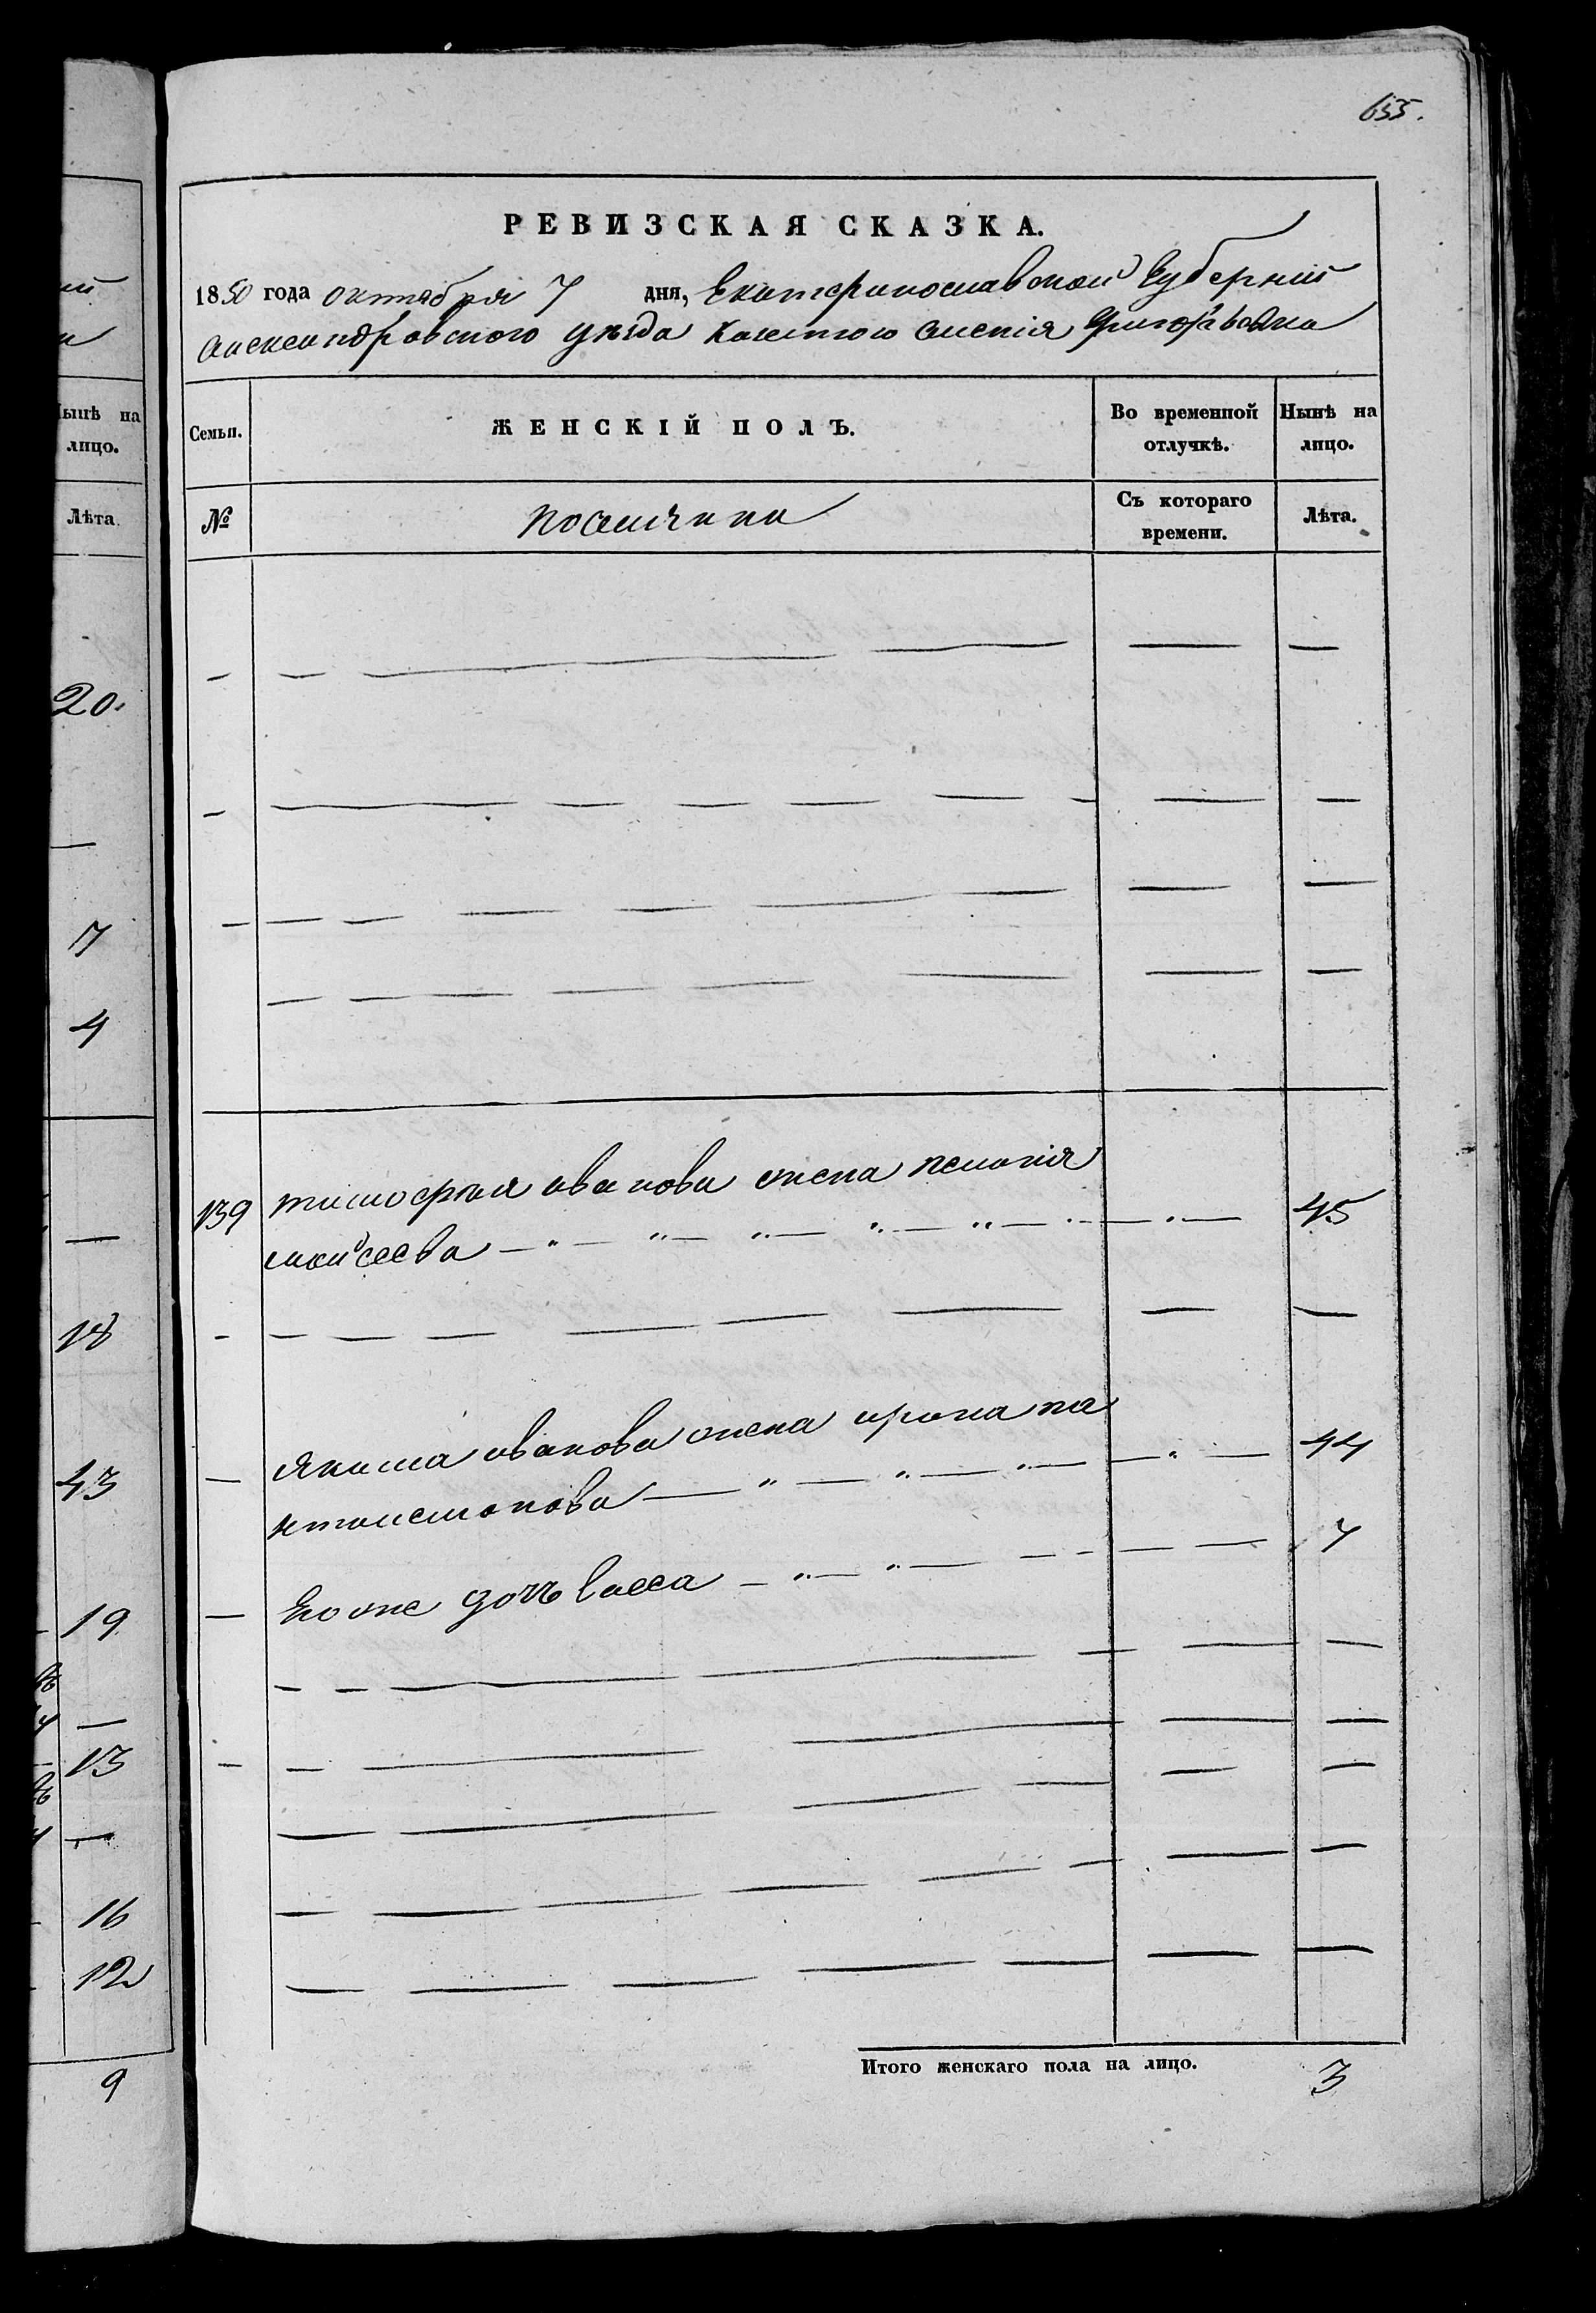 655.
РЕВИЗСКАЯ СКАЗКА.
1850 года октября 7 дня, Екатеринославской Губерніи
Александровского уѣзда Казенного селенія Григорьевки
Семьи. ЖЕНСКІЙ ПОЛЪ. Во временной отлучкѣ. Нынѣ на лицо.
№ поселяне Съ котораго времени. Лѣта.
139 тимофѣя иванова жена пелагія
моисеева 45
якима иванова жена ирина па
нтелемонова 44
Его же дочь васса 7
Итого женскаго пола на лицо. 3
Нынѣ на
лицо.
Лѣта
20.
7
4
18
43
19
13
16
12
9